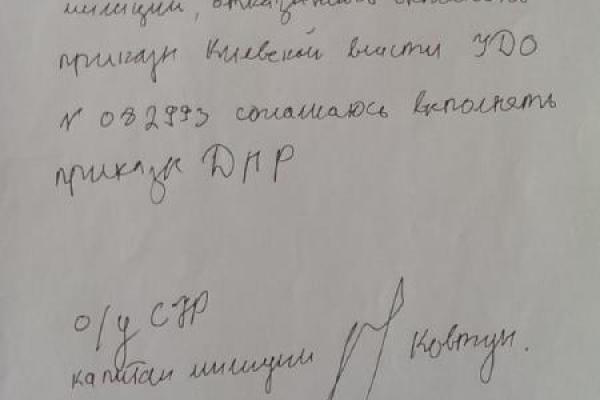 милиции, отказываюсь выполнять
приказы Киевской власти УДО
N 082993 соглашаюсь выполнять
приказы ДНР
о/у СЗР
капитан милиции Ковтун.